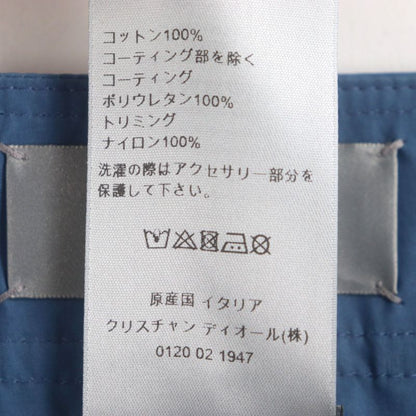 コットン100%
コーティング部を除く
コーティング
ポリウレタン100%
トリミング
ナイロン100%
洗濯の際はアクセサリー部分を
保護して下さい。
原産国 イタリア
クリスチャン ディオール(株)
0120 02 1947